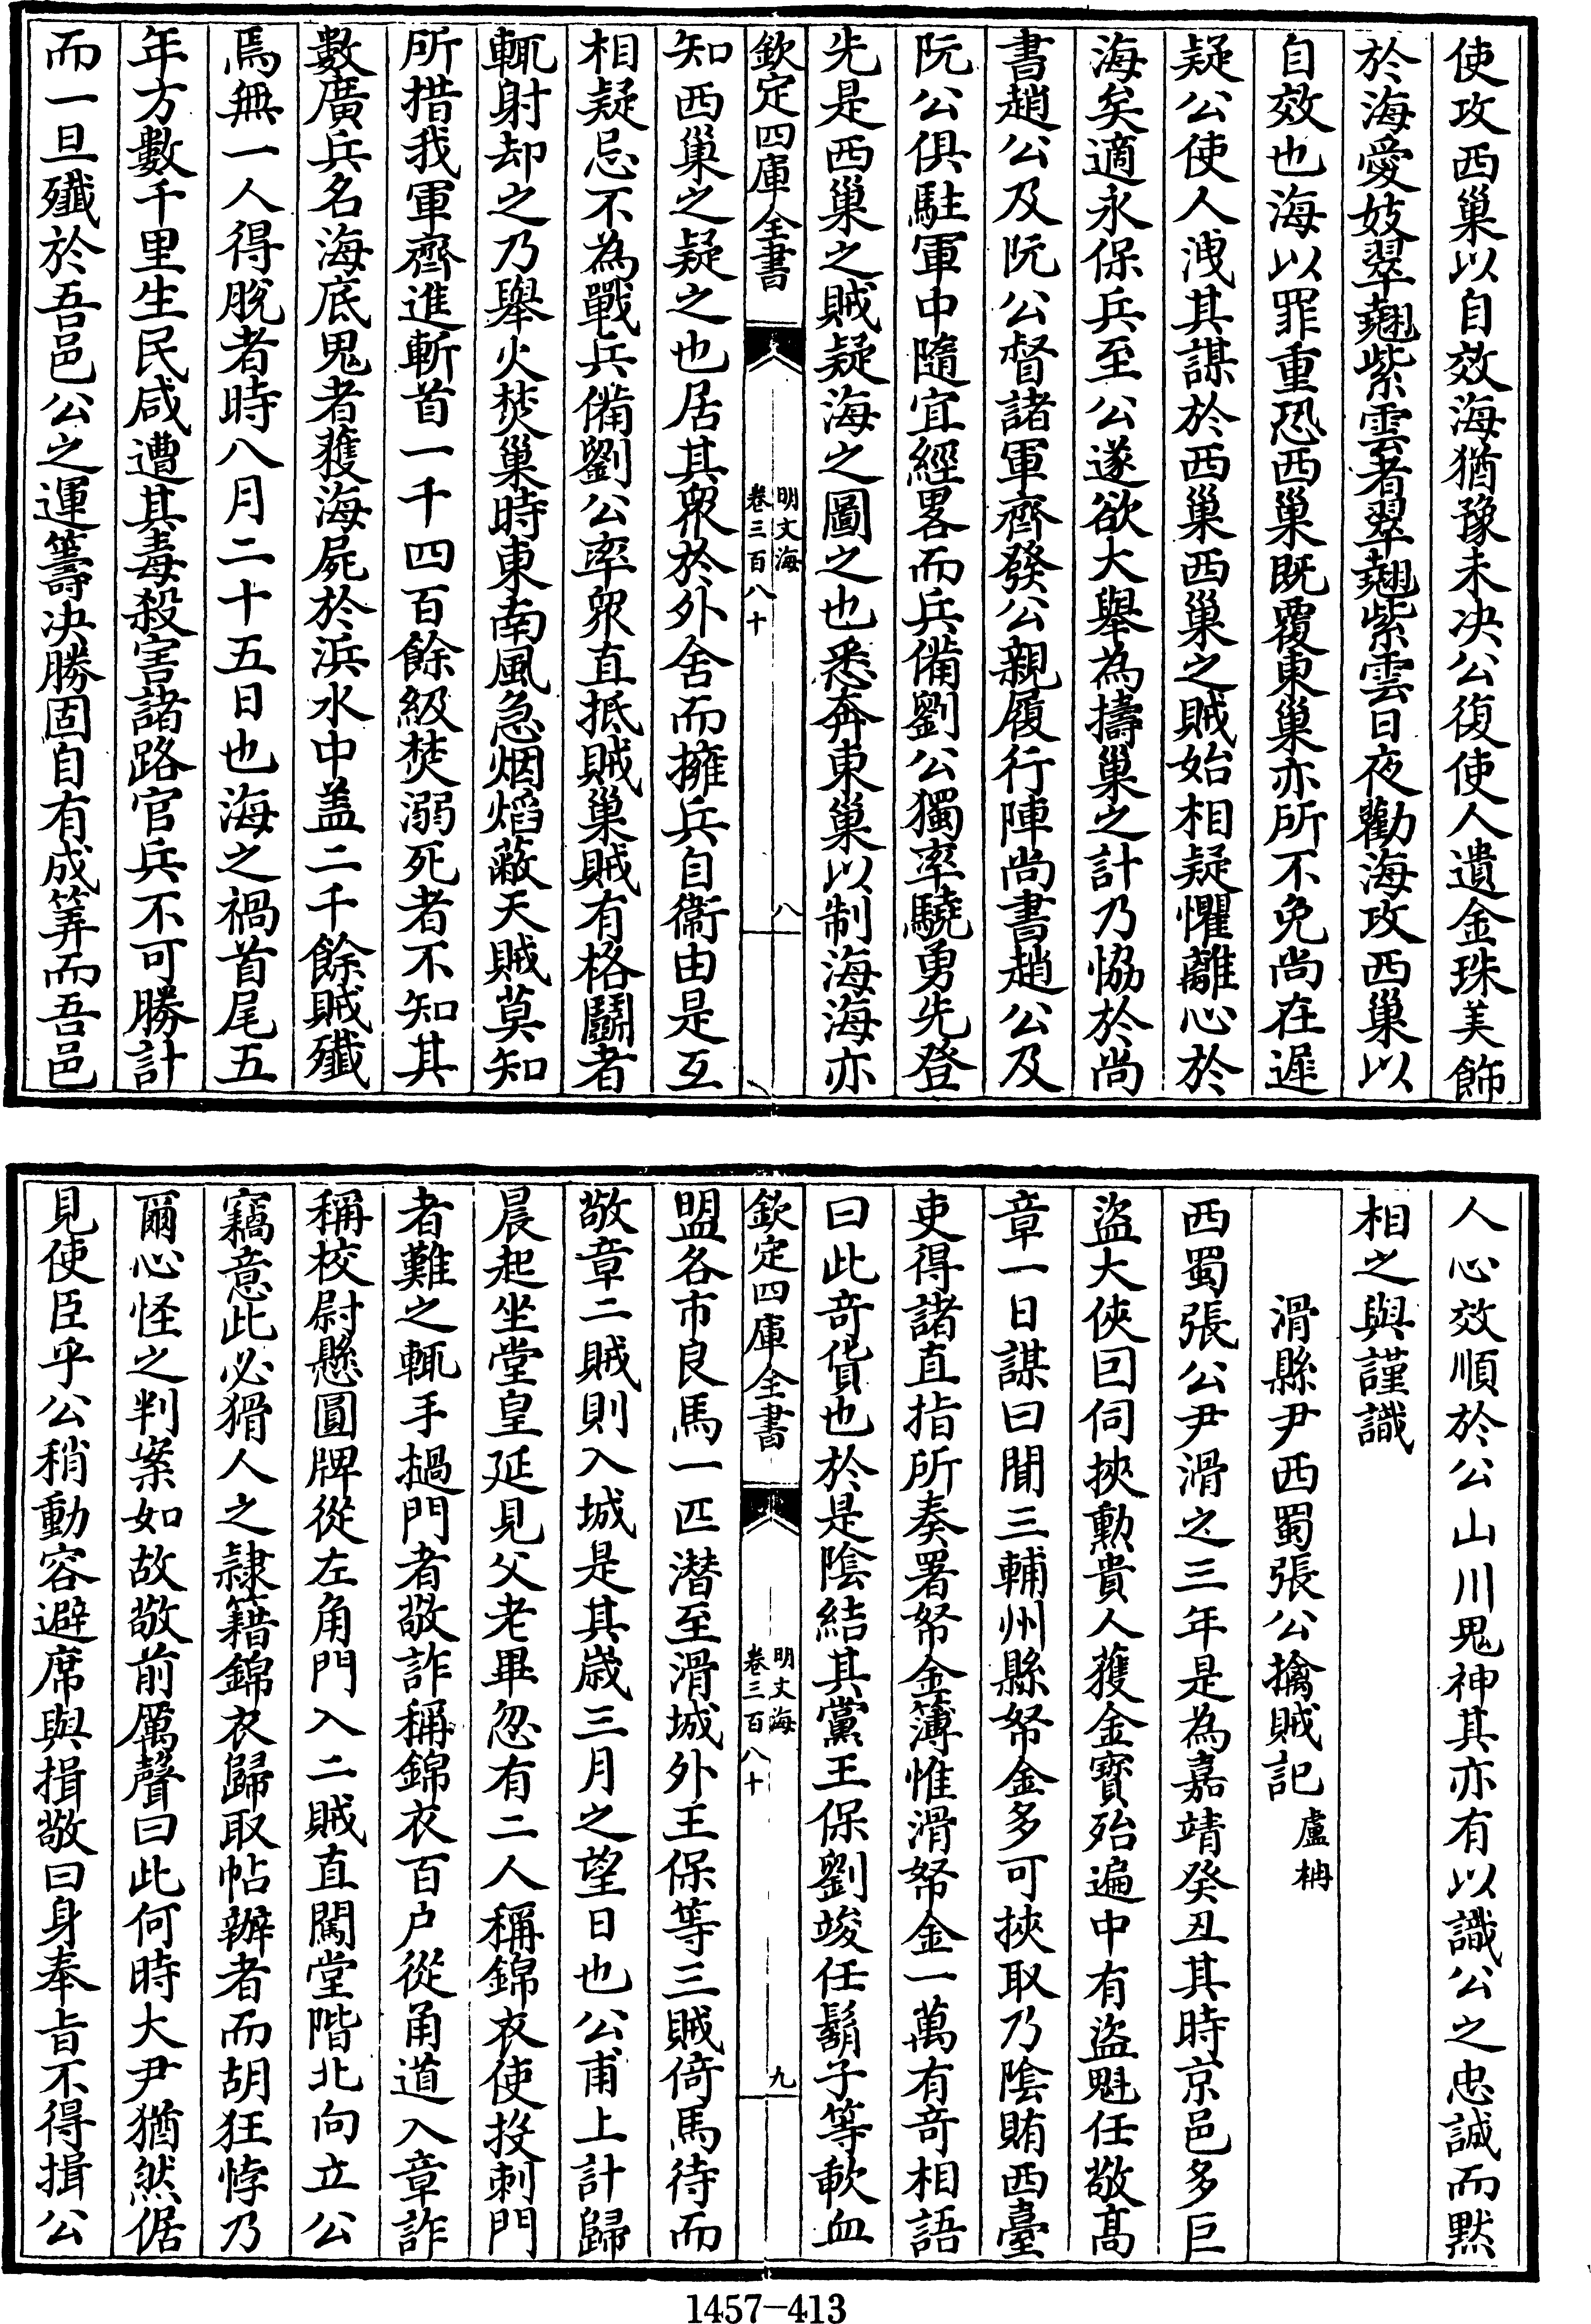 使攻西巢以自效海猶豫未决公復使人遺金珠美飾
於海愛妓翠翹紫雲者翠翹紫雲日夜勸海攻西巢以
自效也海以罪重恐西巢既覆東巢亦所不免尚在遲
疑公使人洩其謀於西巢西巢之賊始相疑懼離心於
海矣適永保兵至公遂欲大舉為擣巢之計乃恊於尚
書趙公及阮公督諸軍齊發公親履行陣尚書趙公及
阮公俱駐軍中隨宜經畧而兵備劉公獨率驍勇先登
先是西巢之賊疑海之圖之也悉奔東巢以制海海亦
欽定四庫全書
明文海
卷三百八十
八
知西巢之疑之也居其衆於外舍而擁兵自衞由是互
相疑忌不為戰兵備劉公率衆直抵賊巢賊有格鬭者
輒射却之乃舉火焚巢時東南風急烟焰蔽天賊莫知
所措我軍齊進斬首一千四百餘級焚溺死者不知其
數廣兵名海底鬼者獲海屍於浜水中盖二千餘賊殲
焉無一人得脫者時八月二十五日也海之禍首尾五
年方數千里生民咸遭其毒殺害諸路官兵不可勝計
而一旦殲於吾邑公之運籌决勝固自有成筭而吾邑
人心效順於公山川鬼神其亦有以識公之忠誠而默
相之與謹識
滑縣尹西蜀張公擒賊記
盧柟
西蜀張公尹滑之三年是為嘉靖癸丑其時京邑多巨
盜大俠囙伺挾勲貴人獲金寳殆遍中有盜魁任敬髙
章一日謀曰聞三輔州縣帑金多可挾取乃陰賄西臺
吏得諸直指所奏署帑金簿惟滑帑金一萬有竒相語
曰此竒貨也於是陰結其黨王保劉竣任鬍子等軟血
欽定四庫全書
明文海
卷三百八十
九
盟各市良馬一匹潜至滑城外王保等三賊倚馬待而
敬章二賊則入城是其歳三月之望日也公甫上計歸
晨起坐堂皇延見父老畢忽有二人稱錦衣使投刺門
者難之輒手撾門者敬詐稱錦衣百户從甬道入章詐
稱校尉懸圓牌從左角門入二賊直闖堂階北向立公
竊意此必猾人之隷籍錦衣歸取帖辦者而胡狂悖乃
爾心怪之判案如故敬前厲聲曰此何時大尹猶然倨
見使臣乎公稍動容避席與揖敬曰身奉㫖不得揖公
1457-413